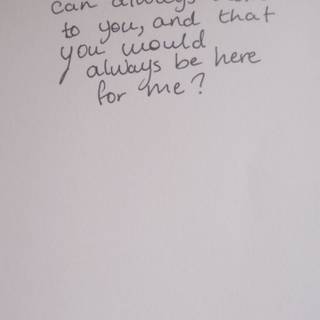 can always
to you, and that
you would
always be here
for me?